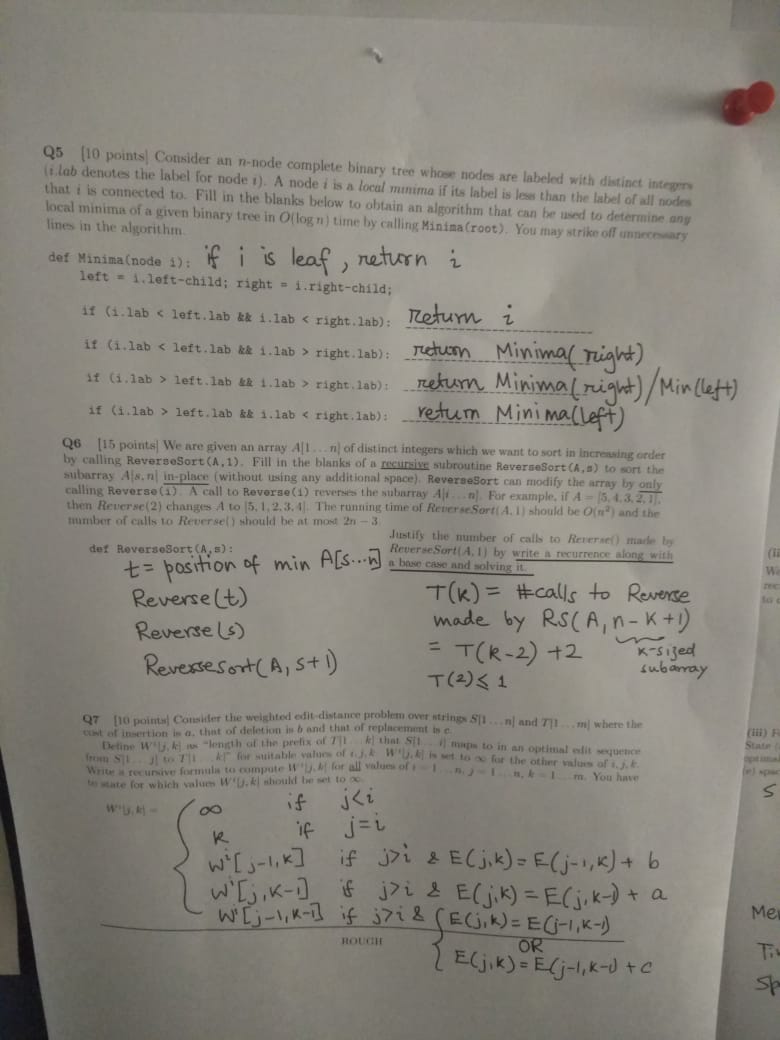 Q5 [10 points] Consider an n-node complete binary tree whose nodes are labeled with distinct integers
(i.lab denotes the label for node i). A node i is a local minima if its label is less than the label of all nodes
that i is connected to. Fill in the blanks below to obtain an algorithm that can be used to determine any
local minima of a given binary tree in O(log n) time by calling Minima(root). You may strike off unnecessary
lines in the algorithm.
def Minima(node i): if i is leaf, return i
left = i.left-child; right = i.right-child;
if (i.lab < left.lab && i.lab < right.lab): return i
if (i.lab < left.lab && i.lab > right.lab): return Minima(right)
if (i.lab > left.lab && i.lab > right.lab): return Minima(right)/Min(left)
if (i.lab > left.lab && i.lab < right.lab): return Minima(left)
Q6 [15 points] We are given an array A[1...n] of distinct integers which we want to sort in increasing order
by calling ReverseSort(A,1). Fill in the blanks of a recursive subroutine ReverseSort(A,s) to sort the
subarray A[s,n] in-place (without using any additional space). ReverseSort can modify the array by only
calling Reverse(i). A call to Reverse(i) reverses the subarray A[i...n]. For example, if A = [5,4,3,2,1],
then Reverse(2) changes A to [5,1,2,3,4]. The running time of ReverseSort(A,1) should be O(n²) and the
number of calls to Reverse() should be at most 2n − 3.
def ReverseSort(A,s):
t = position of min A[s...n]
Reverse(t)
Reverse(s)
ReverseSort(A, s+1)
Justify the number of calls to Reverse() made by
ReverseSort(A,1) by write a recurrence along with
a base case and solving it.
T(k) = #calls to Reverse
made by RS(A, n-k+1)
k-sized
subarray
= T(k-2) + 2
T(2) ≤ 1
Q7 [10 points] Consider the weighted edit-distance problem over strings S[1...n] and T[1...m] where the
cost of insertion is a, that of deletion is b and that of replacement is c.
Define Wⁱ[j,k] as "length of the prefix of T[1...k] that S[1...i] maps to in an optimal edit sequence
from S[1...j] to T[1...k]" for suitable values of i, j, k. Wⁱ[j,k] is set to ∞ for the other values of i, j, k.
Write a recursive formula to compute Wⁱ[j,k] for all values of i = 1...n, j = 1...n, k = 1...m. You have
to state for which values Wⁱ[j,k] should be set to ∞.
Wⁱ[j,k] =
∞ if j<i
k if j=i
Wⁱ[j-1,k] if j>i & E(j,k) = E(j-1,k) + b
Wⁱ[j,k-1] if j>i & E(j,k) = E(j,k-1) + a
Wⁱ[j-1,k-1] if j>i & { E(j,k) = E(j-1,k-1)
OR
E(j,k) = E(j-1,k-1) + c
ROUGH
(iii) F
State
S
Me
Ti
Sp